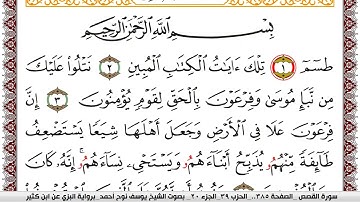 بِسْمِ اللَّهِ الرَّحْمَٰنِ الرَّحِيمِ
طسٓمٓ ١ تِلْكَ ءَايَٰتُ الْكِتَٰبِ الْمُبِينِ ٢ نَتْلُواْ عَلَيْكَ
مِن نَّبَإِ مُوسَىٰ وَفِرْعَوْنَ بِالْحَقِّ لِقَوْمٍ يُؤْمِنُونَ ٣ إِنَّ
فِرْعَوْنَ عَلَا فِي الْأَرْضِ وَجَعَلَ أَهْلَهَا شِيَعًا يَسْتَضْعِفُ
طَآئِفَةً مِّنْهُمُۥ يُذَبِّحُ أَبْنَآءَهُمُۥ وَيَسْتَحْيِۦ نِسَآءَهُمُۥٓ إِنَّهُۥ كَانَ
سورة القصص الصفحة ٣٨٥.. الحزب ٣٩ الجزء ٢٠ بصوت الشيخ يوسف نوح أحمد برواية البزي عن ابن كثير